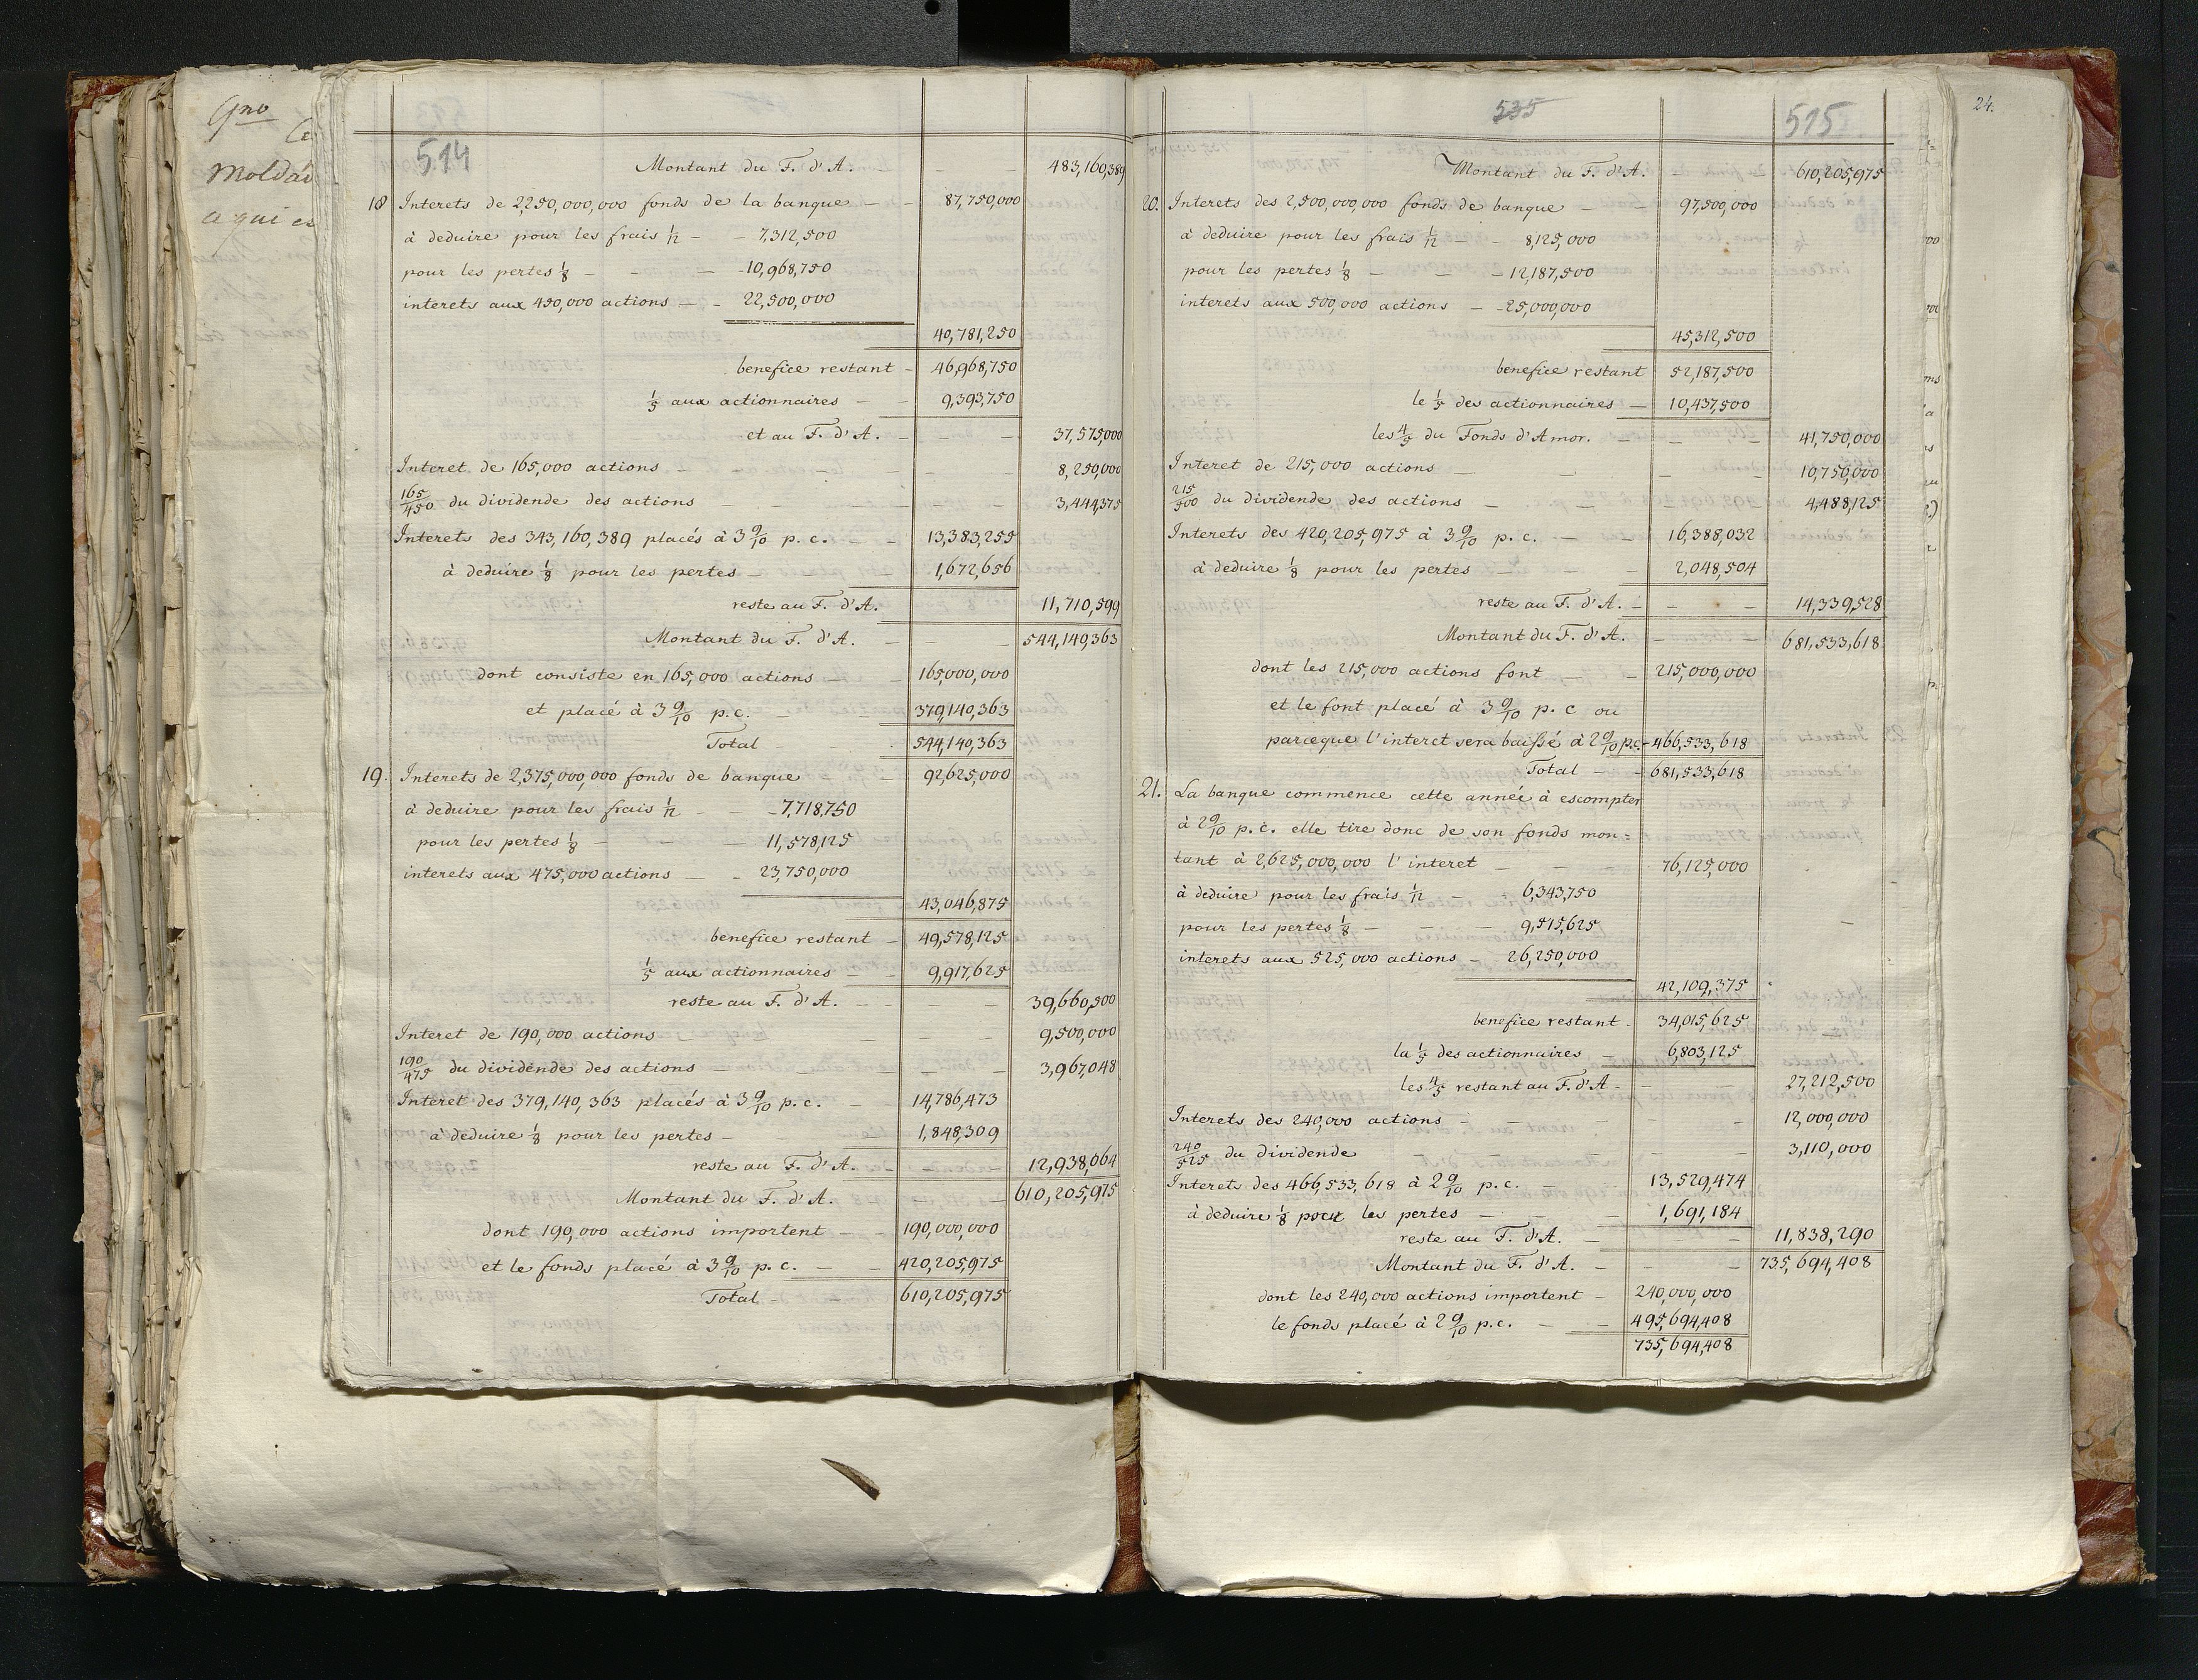 514
Montant du F. d'A. - - 483,160,389
18 Interets de 2,250,000,000 fonds de la banque - - 87,750,000
à deduire pour les frais 1/12 - - 7,312,500
pour les pertes 1/8 - - - -10,968,750
interets aux 450,000 actions - - 22,500,000
40,781,250
benefice restant - 46,968,750
1/5 aux actionnaires - - 9,393,750
et au F. d'A. - - - 37,575,000
Interet de 165,000 actions - - - - 8,250,000
165/450 du dividende des actions - - - - 3,444,375
Interets des 343,160,389 placés à 3 9/10 p. c. - - 13,383,255
à deduire 1/8 pour les pertes - - - 1,672,656
reste au F. d'A. 11,710,599
Montant du F. d'A. - - - 544,140,363
dont consiste en 165,000 actions - - 165,000,000
et placé à 3 9/10 p.c. - - 379,140,363
Total - - 544,140,363
19. Interets de 2,375,000,000 fonds de banque - 92,625,000
à deduire pour les frais 1/12 - - -7,718,750
pour les pertes 1/8 - - - 11,578,125
interets aux 475,000 actions - - 23,750,000
43,046,875
benefice restant - 49,578,125
1/5 aux actionnaires - - 9,917,625
reste au F. d'A. - - - 39,660,500
Interet de 190,000 actions - - - 9,500,000
190/475 du dividende des actions - - - 3,967,048
Interet des 379,140,363 placés à 3 9/10 p.c. - - 14,786,473
à deduire 1/8 pour les pertes - - - 1,848,309
reste au F. d'A. - - - 12,938,064
Montant du F. d'A. 610,205,975
dont 190,000 actions importent - - 190,000,000
et le fonds placé à 3 9/10 p.c. - - 420,205,975
Total - - 610,205,975
535
515
Montant du F. d'A. - - 610,205,975
20. Interets des 2,500,000,000 fonds de banque - - 97,500,000
à deduire pour les frais 1/12 - - 8,125,000
pour les pertes 1/8 - - - - 12,187,500
interets aux 500,000 actions - -25,000,000
45,312,500
benefice restant 52,187,500
le 1/5 des actionnaires - 10,437,500
les 4/5 du Fonds d'Amor. - - 41,750,000
Interet de 215,000 actions - - - - 10,750,000
215/500 du dividende des actions - - - - 4,488,125
Interets des 420,205,975 à 3 9/10 p.c. - - 16,388,032
à deduire 1/8 pour les pertes - - - 2,048,504
reste au F. d'A. - - - 14,339,528
Montant du F. d'A. - - 681,533,618
dont les 215,000 actions font - - 215,000,000
et le font placé à 3 9/10 p.c ou
parceque l'interet sera baissé à 2 9/10 p.c. - 466,533,618
Total - - 681,533,618
21. La banque commence cette année à escompter
à 2 9/10 p.c. elle tire donc de son fonds mon=
tant à 2,625,000,000 l'interet - - - 76,125,000
à deduire pour les frais 1/12 - - 6,343,750
pour les pertes 1/8 - - - 9,515,625
interets aux 525,000 actions - 26,250,000
42,109,375
benefice restant - 34,015,625
la 1/5 des actionnaires - 6,803,125
les 4/5 restant au F. d'A - - - 27,212,500
Interets des 240,000 actions - - - - 12,000,000
240/525 du dividende - - - - 3,110,000
Interets des 466,533,618 à 2 9/10 p.c. - 13,529,474
à deduire 1/8 pour les pertes - - 1,691,184
reste au F. d'A. - - - 11,838,290
Montant du F. d'A. - - 735,694,408
dont les 240,000 actions importent - 240,000,000
le fonds placé à 2 9/10 p.c. - - 495,694,408
735,694,408
24.